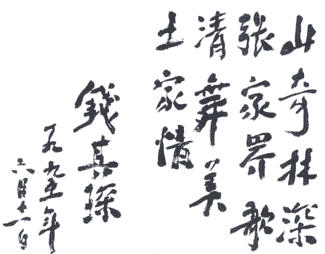 山奇林深
張家界歌
清舞美
土家情
錢其琛
一九九五年
六月十一日